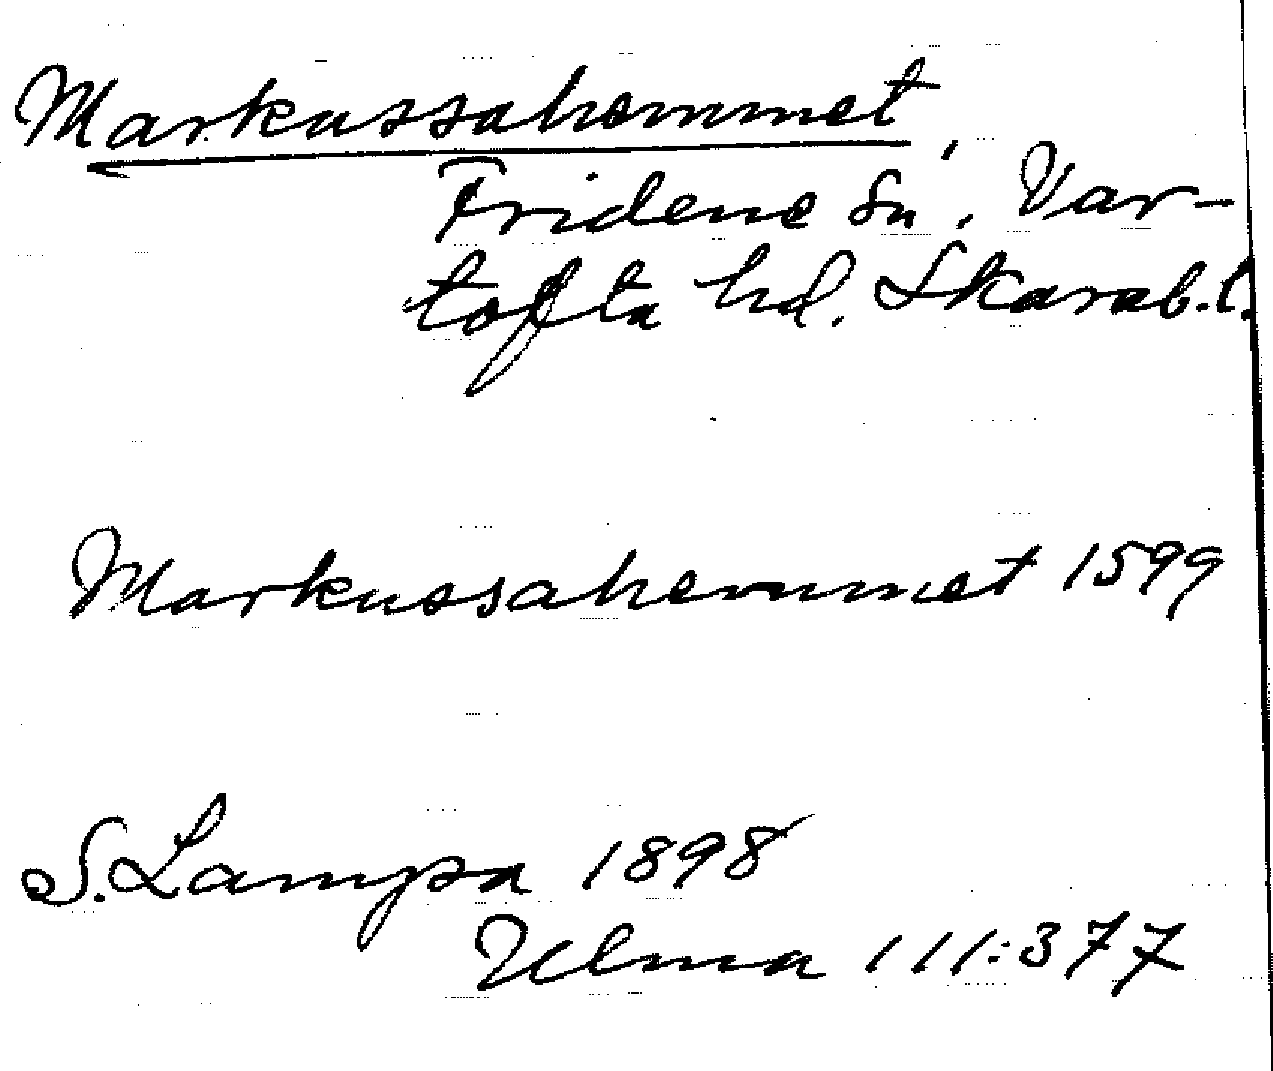 Markussahemmet,
Fridene sn, Var-
tofta hd. Skarab.l.
Markussahemmet 1599
S. Lampa 1898
Ulma 111:377